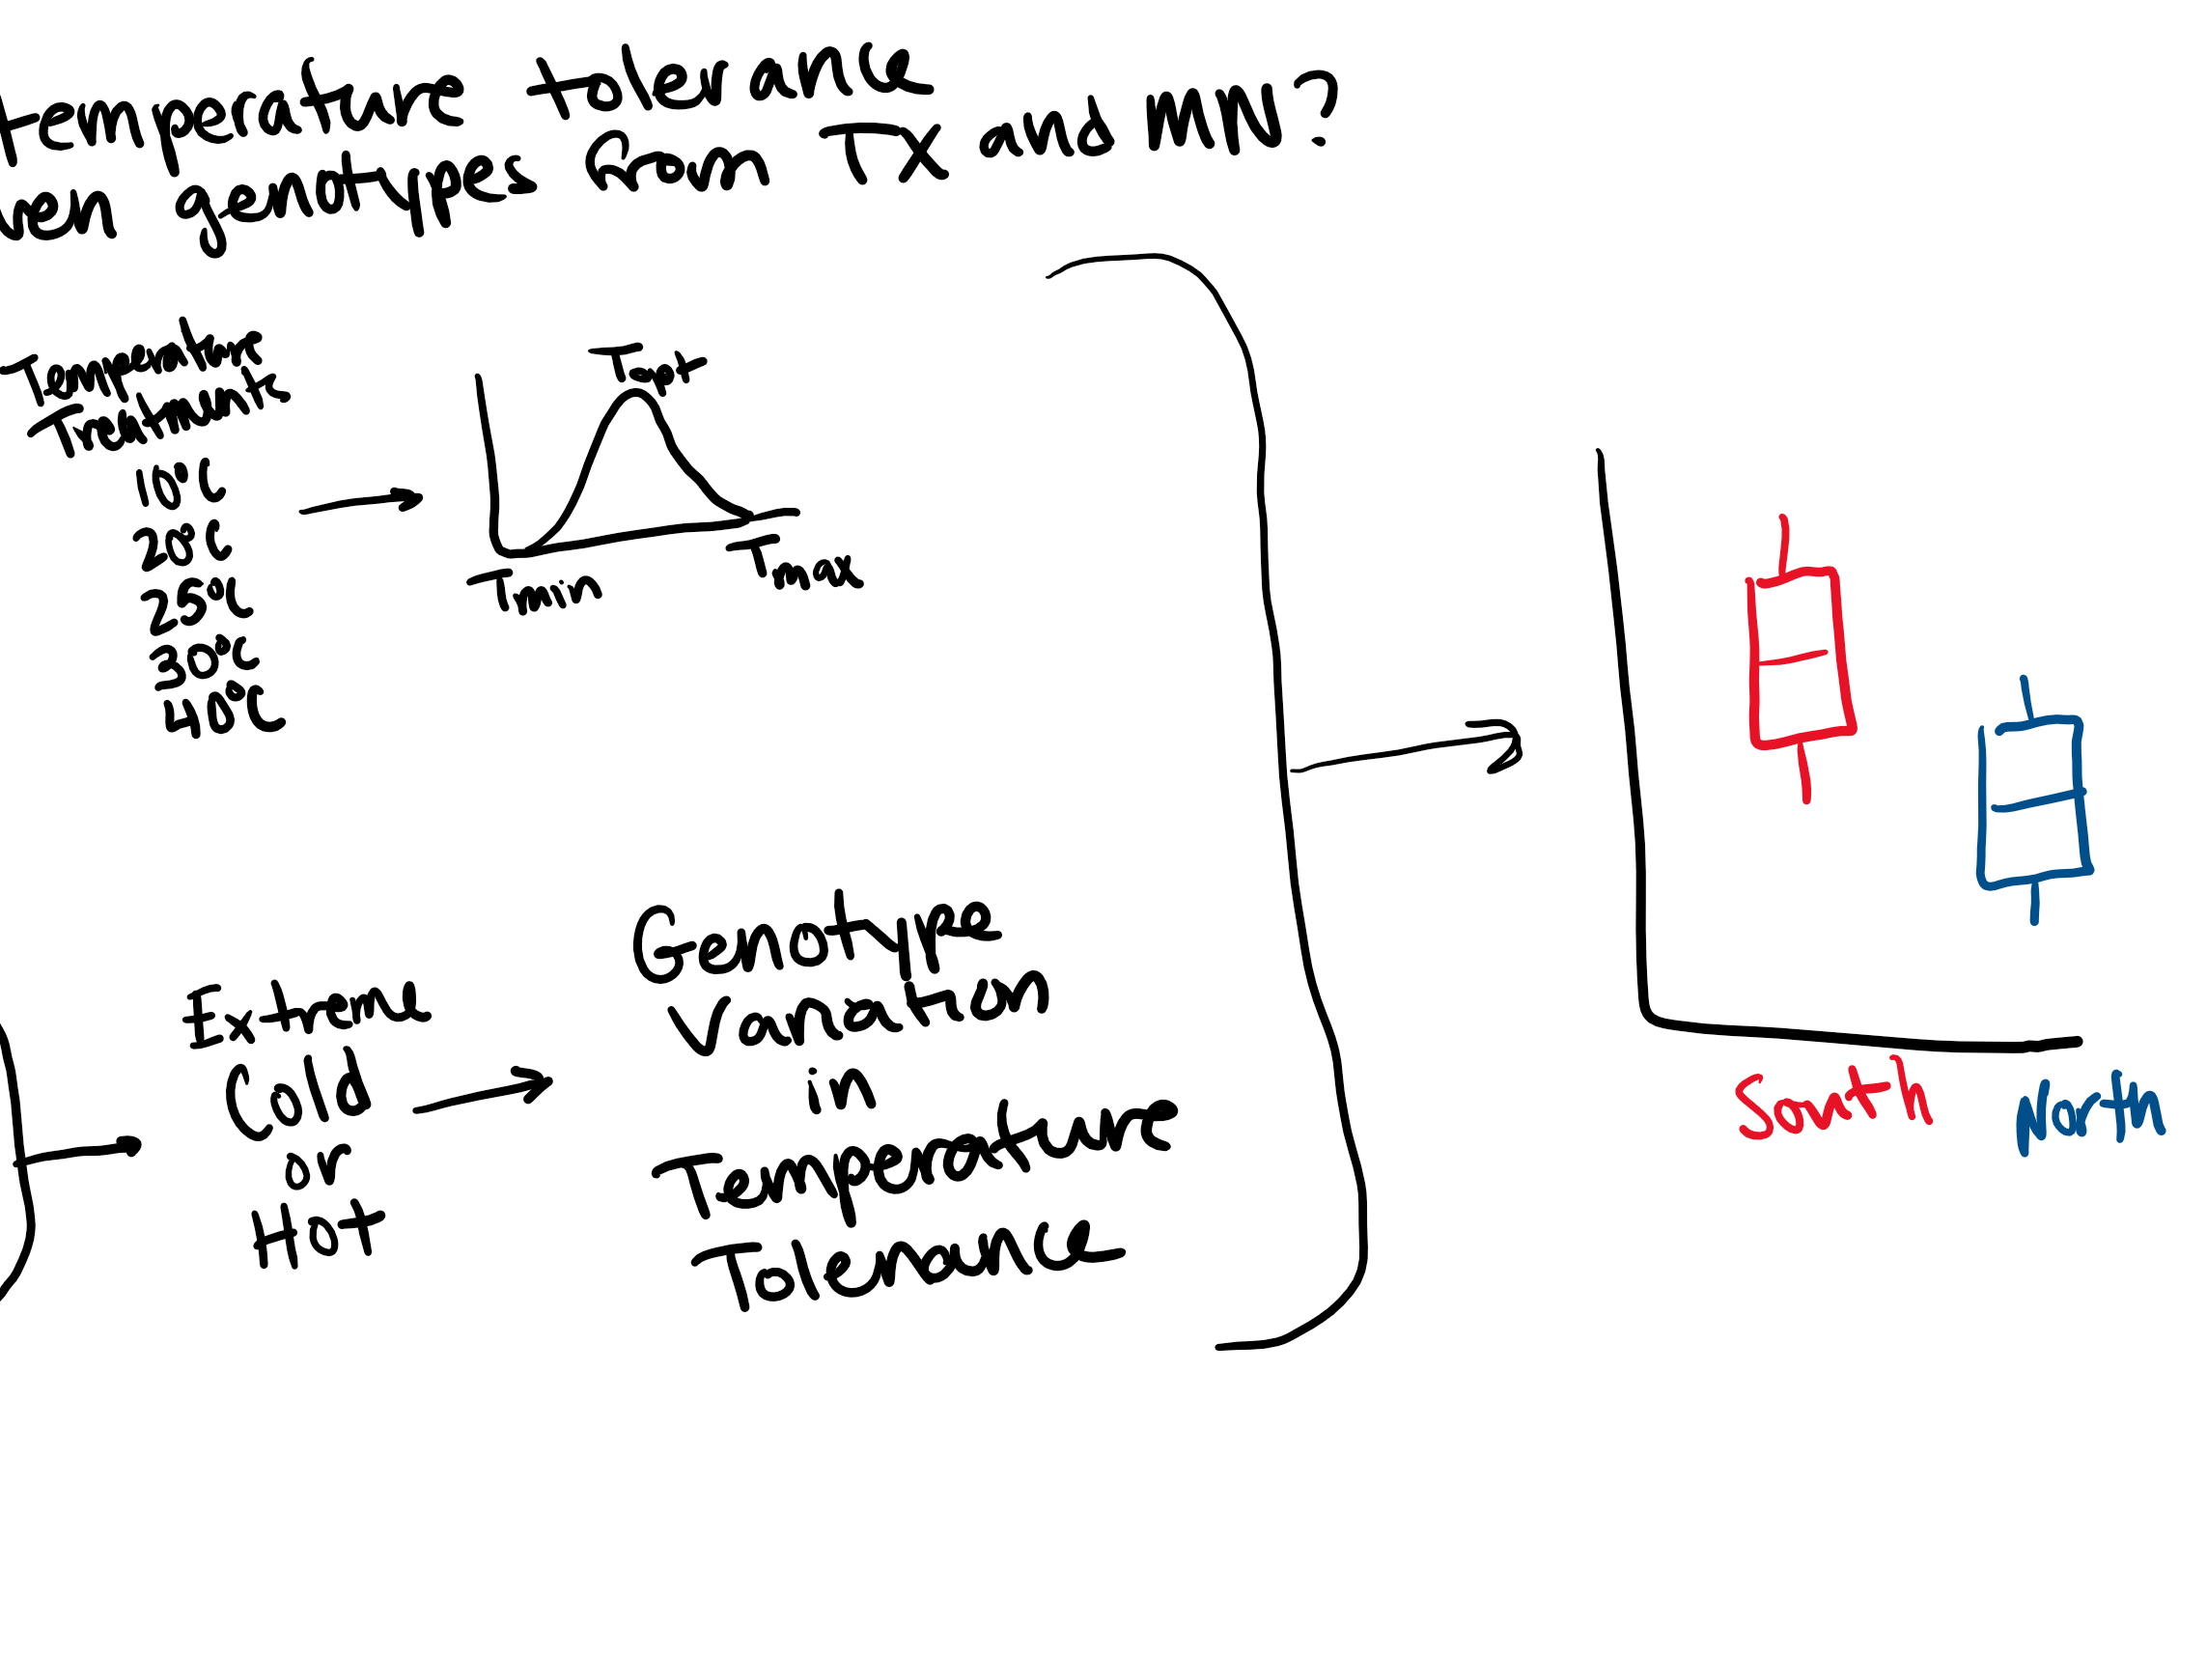 temperature tolerance
genotypes from TX and MN?
Temperature
Treatments
10°C
20°C
25°C
30°C
40°C
Topt
Tmin
Tmax
Extreme
Cold
or
Hot
Genotype
Variation
in
Temperature
Tolerance
South
North